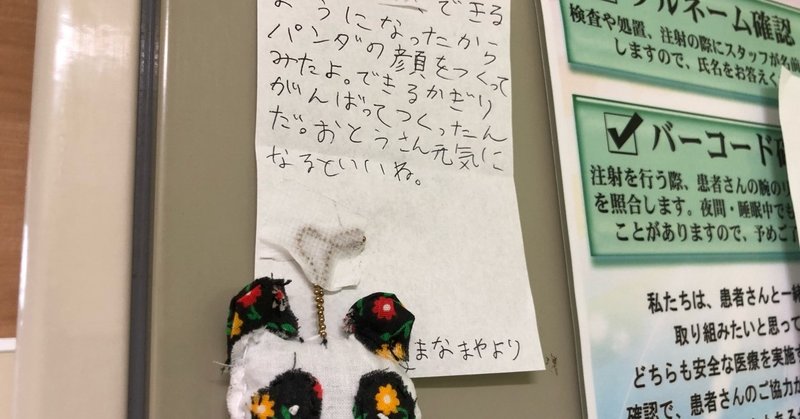 できる
ようになったから
パンダの顔をつくって
みたよ。できるかぎり
がんばってつくったん
だ。おとうさん元気に
なるといいね。
まなまやより
フルネーム確認
検査や処置、注射の際にスタッフが名前
しますので、氏名をお答えく
バーコード確
注射を行う際、患者さんの腕の
を照合します。夜間・睡眠中でも
ことがありますので、予めご了
私たちは、患者さんと一緒
取り組みたいと思って
どちらも安全な医療を実施す
確認で、患者さんのご協力が